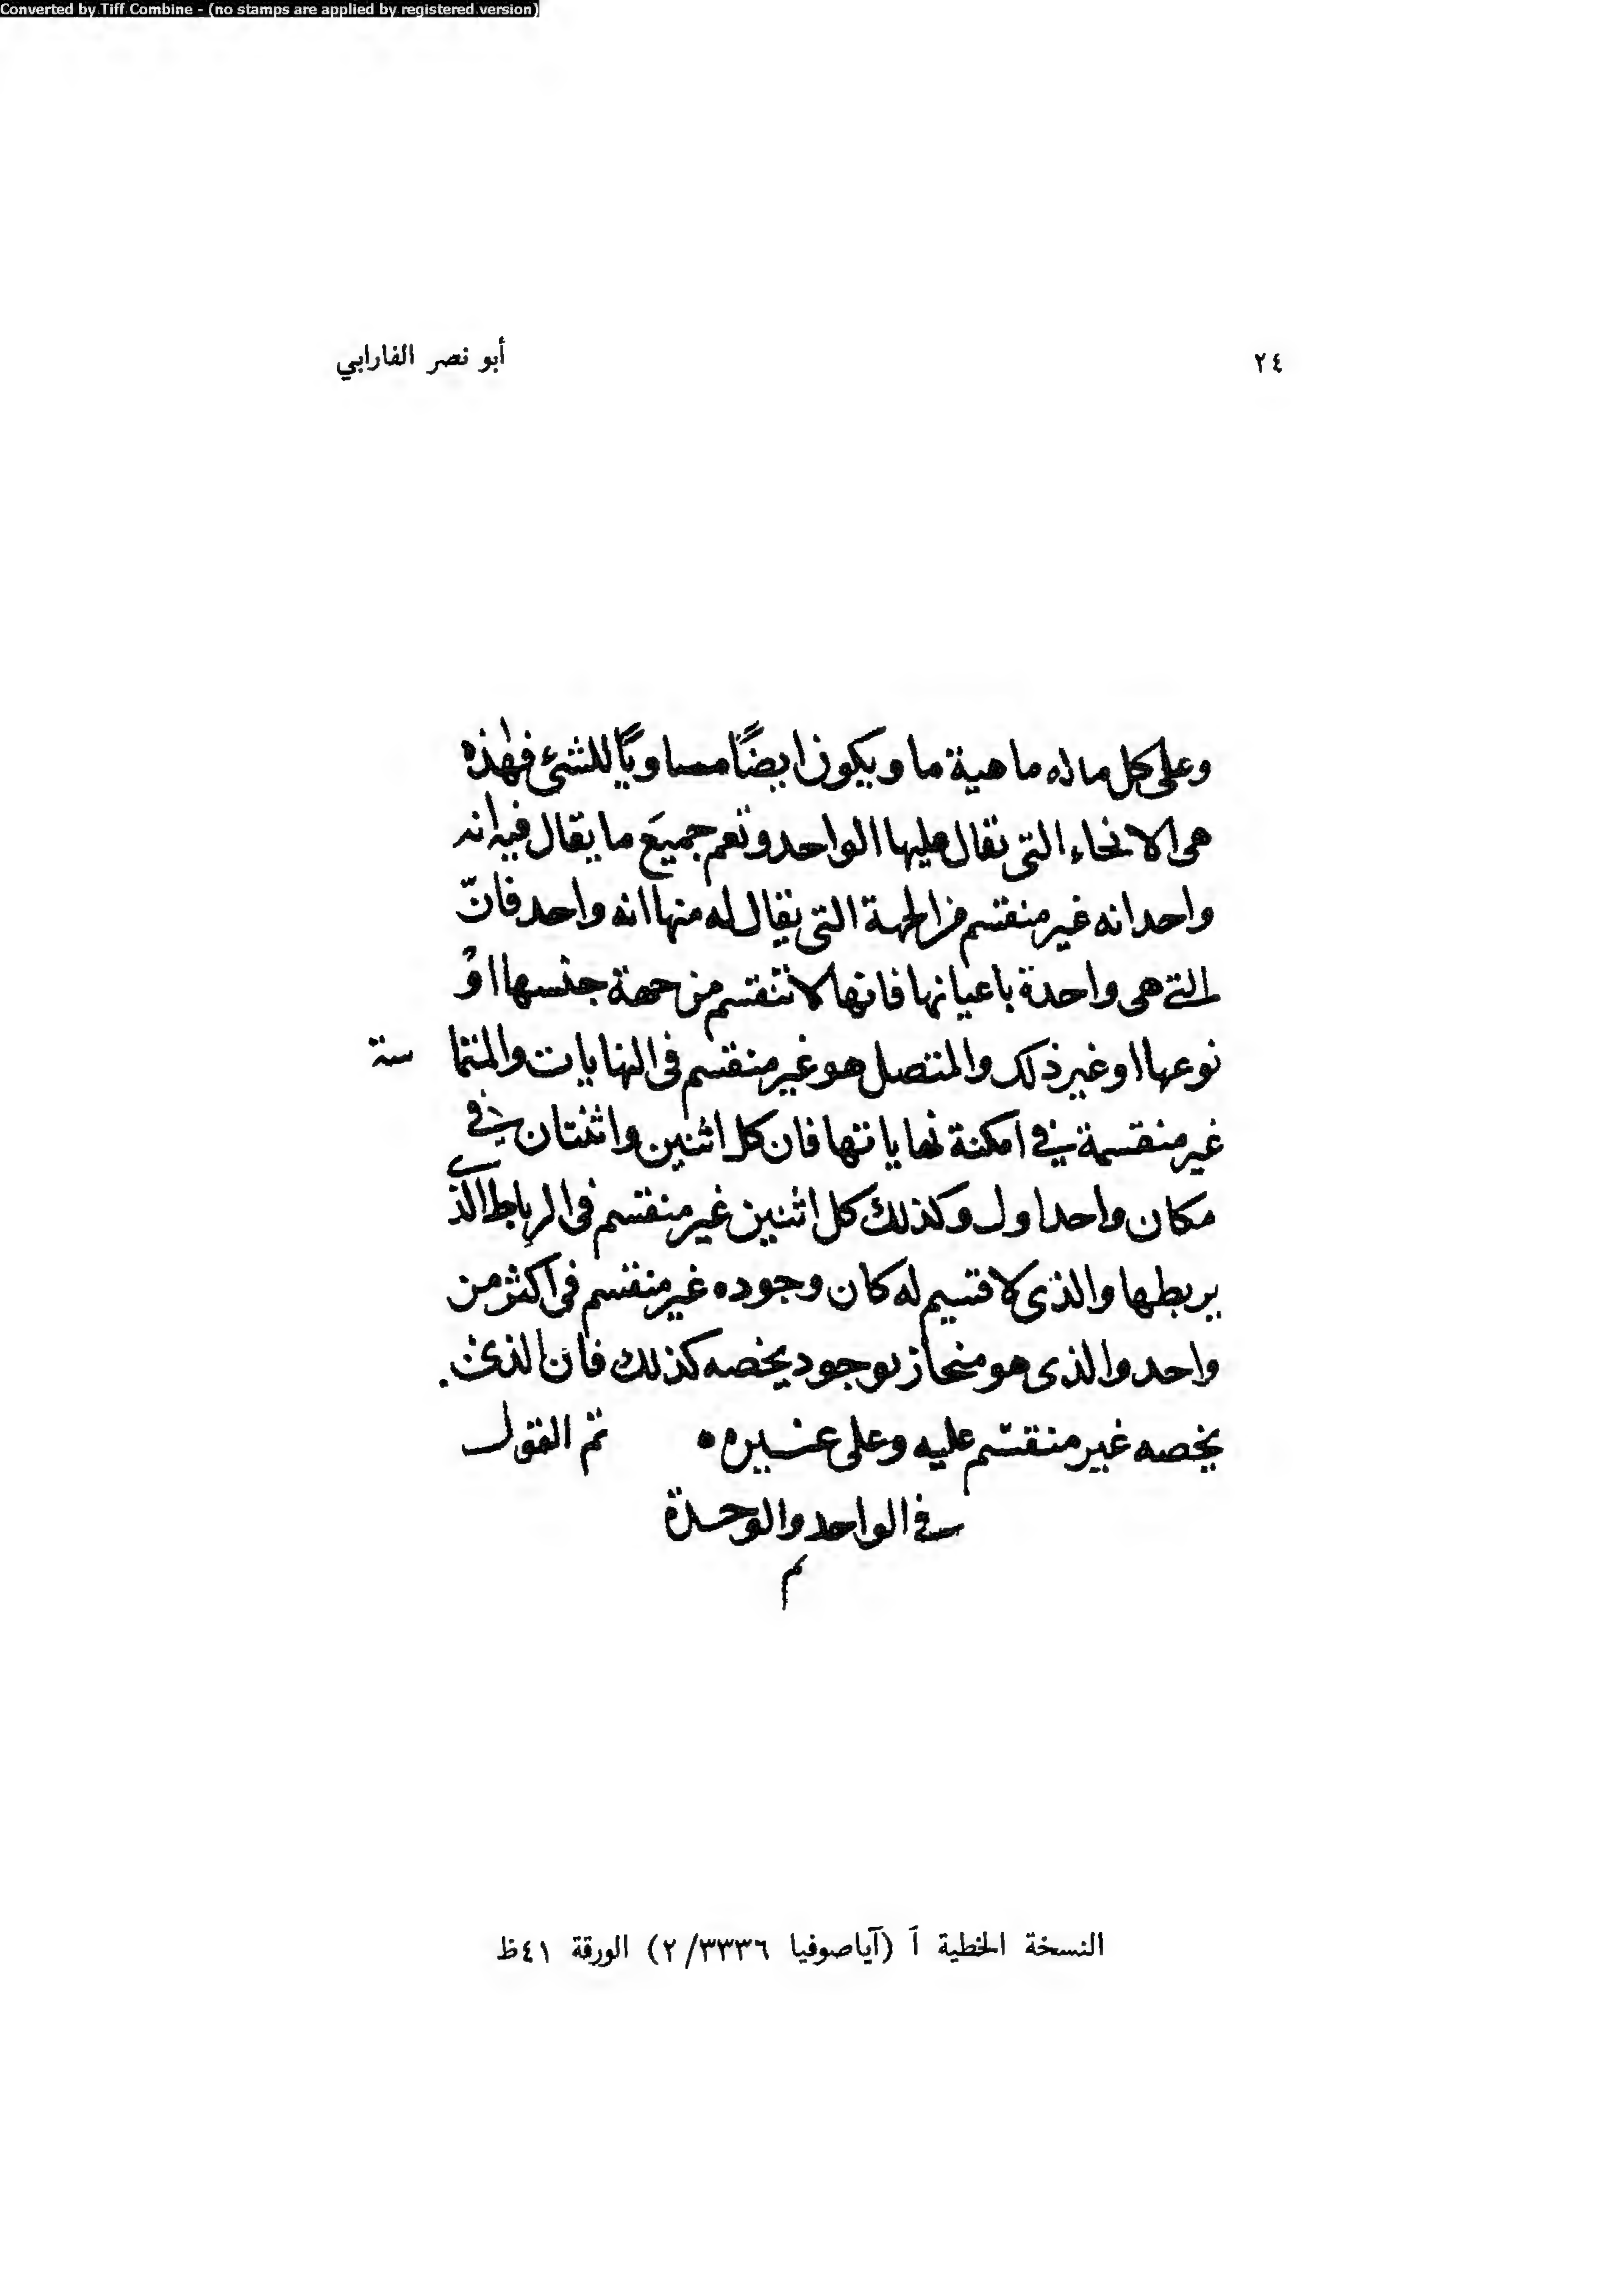 Converted by Tiff Combine - (no stamps are applied by registered version)
٢٤
أبو نصر الفارابي
وعلى كل ماله ماهية ما ويكون ايضًا مساويًا للشئ فهذه
هى الانحاء التى تقال عليها الواحد وتعم جميعَ ما يقال فيه انه
واحد انه غير منقسم من الجهة التى يقال له منها انه واحد فانّ
التى هى واحدة باعيانها فانها لا تنقسم من جهة جنسها او
نوعها او غير ذلك والمتصل هو غير منقسم فى النهايات والمتما سة
غير منقسمة فى امكنة نهاياتها فان كل اثنين واثنتان فى
مكان واحد اول وكذلك كل اثنين غير منقسم فى الرباط الذى
يربطها والذى لا قسيم له كان وجوده غير منقسم فى اكثر من
واحد والذى هو منحاز بوجود يخصه كذلك فان الذى
يخصه غير منقسم عليه وعلى غيره ه تم القول
فى الواحد والوحدة
م
النسخة الخطية آ (آياصوفيا ٣٣٣٦/ ٢) الورقة ٤١ظ